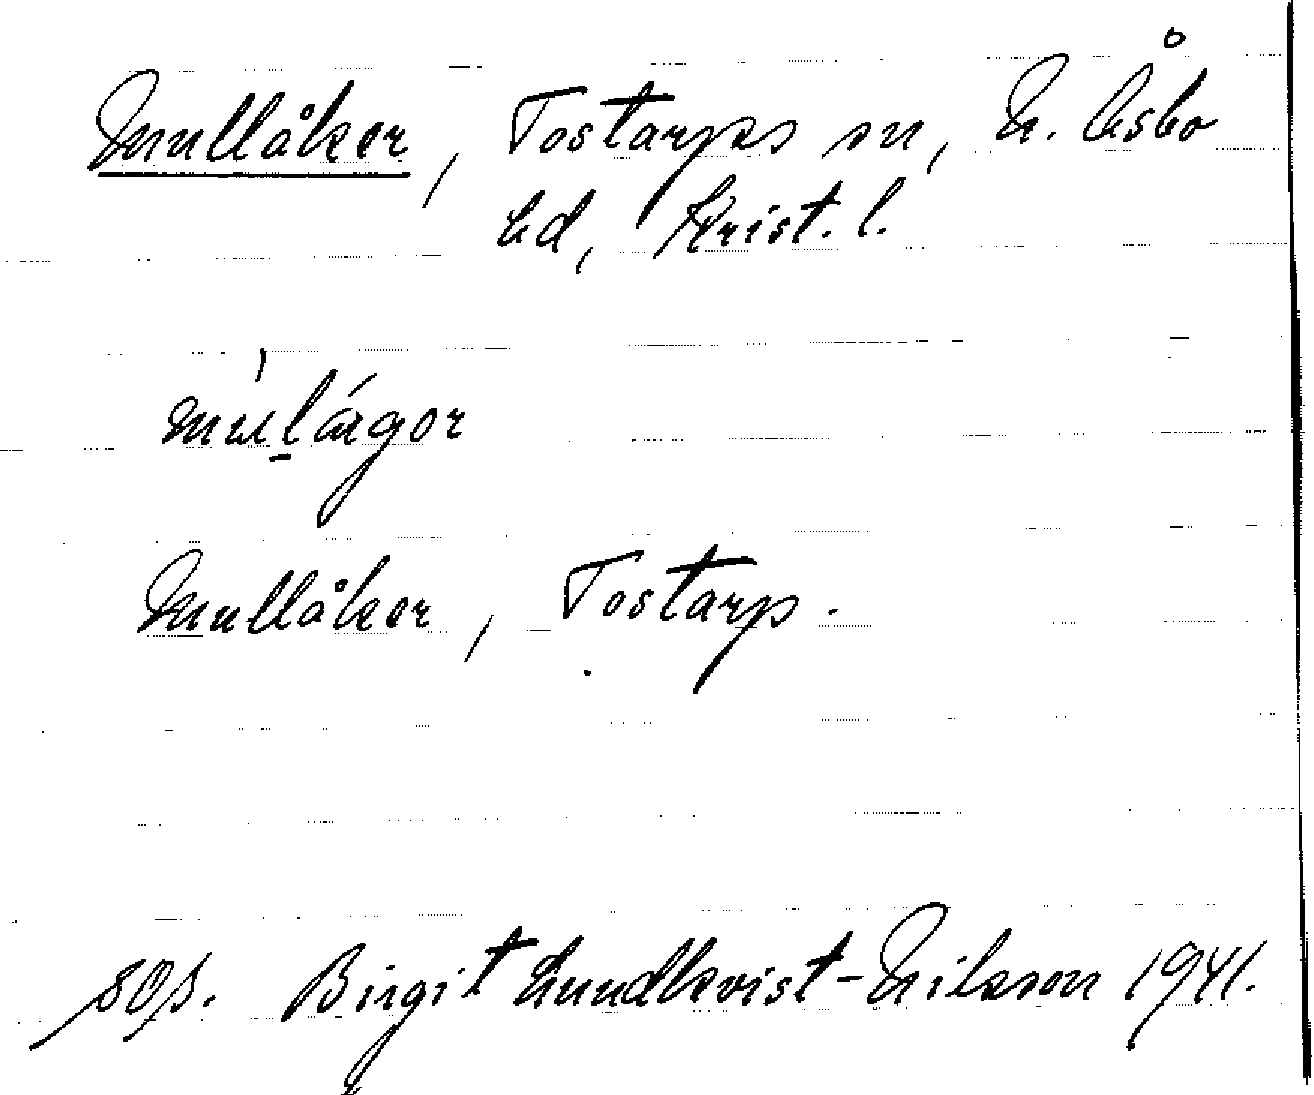 Mullåker, Tostarps sn, N. Åsbo
hd, Krist. l.
múlágor
Mullåker, Tostarp.
Birgit Lundkvist-Nilsson 1941.